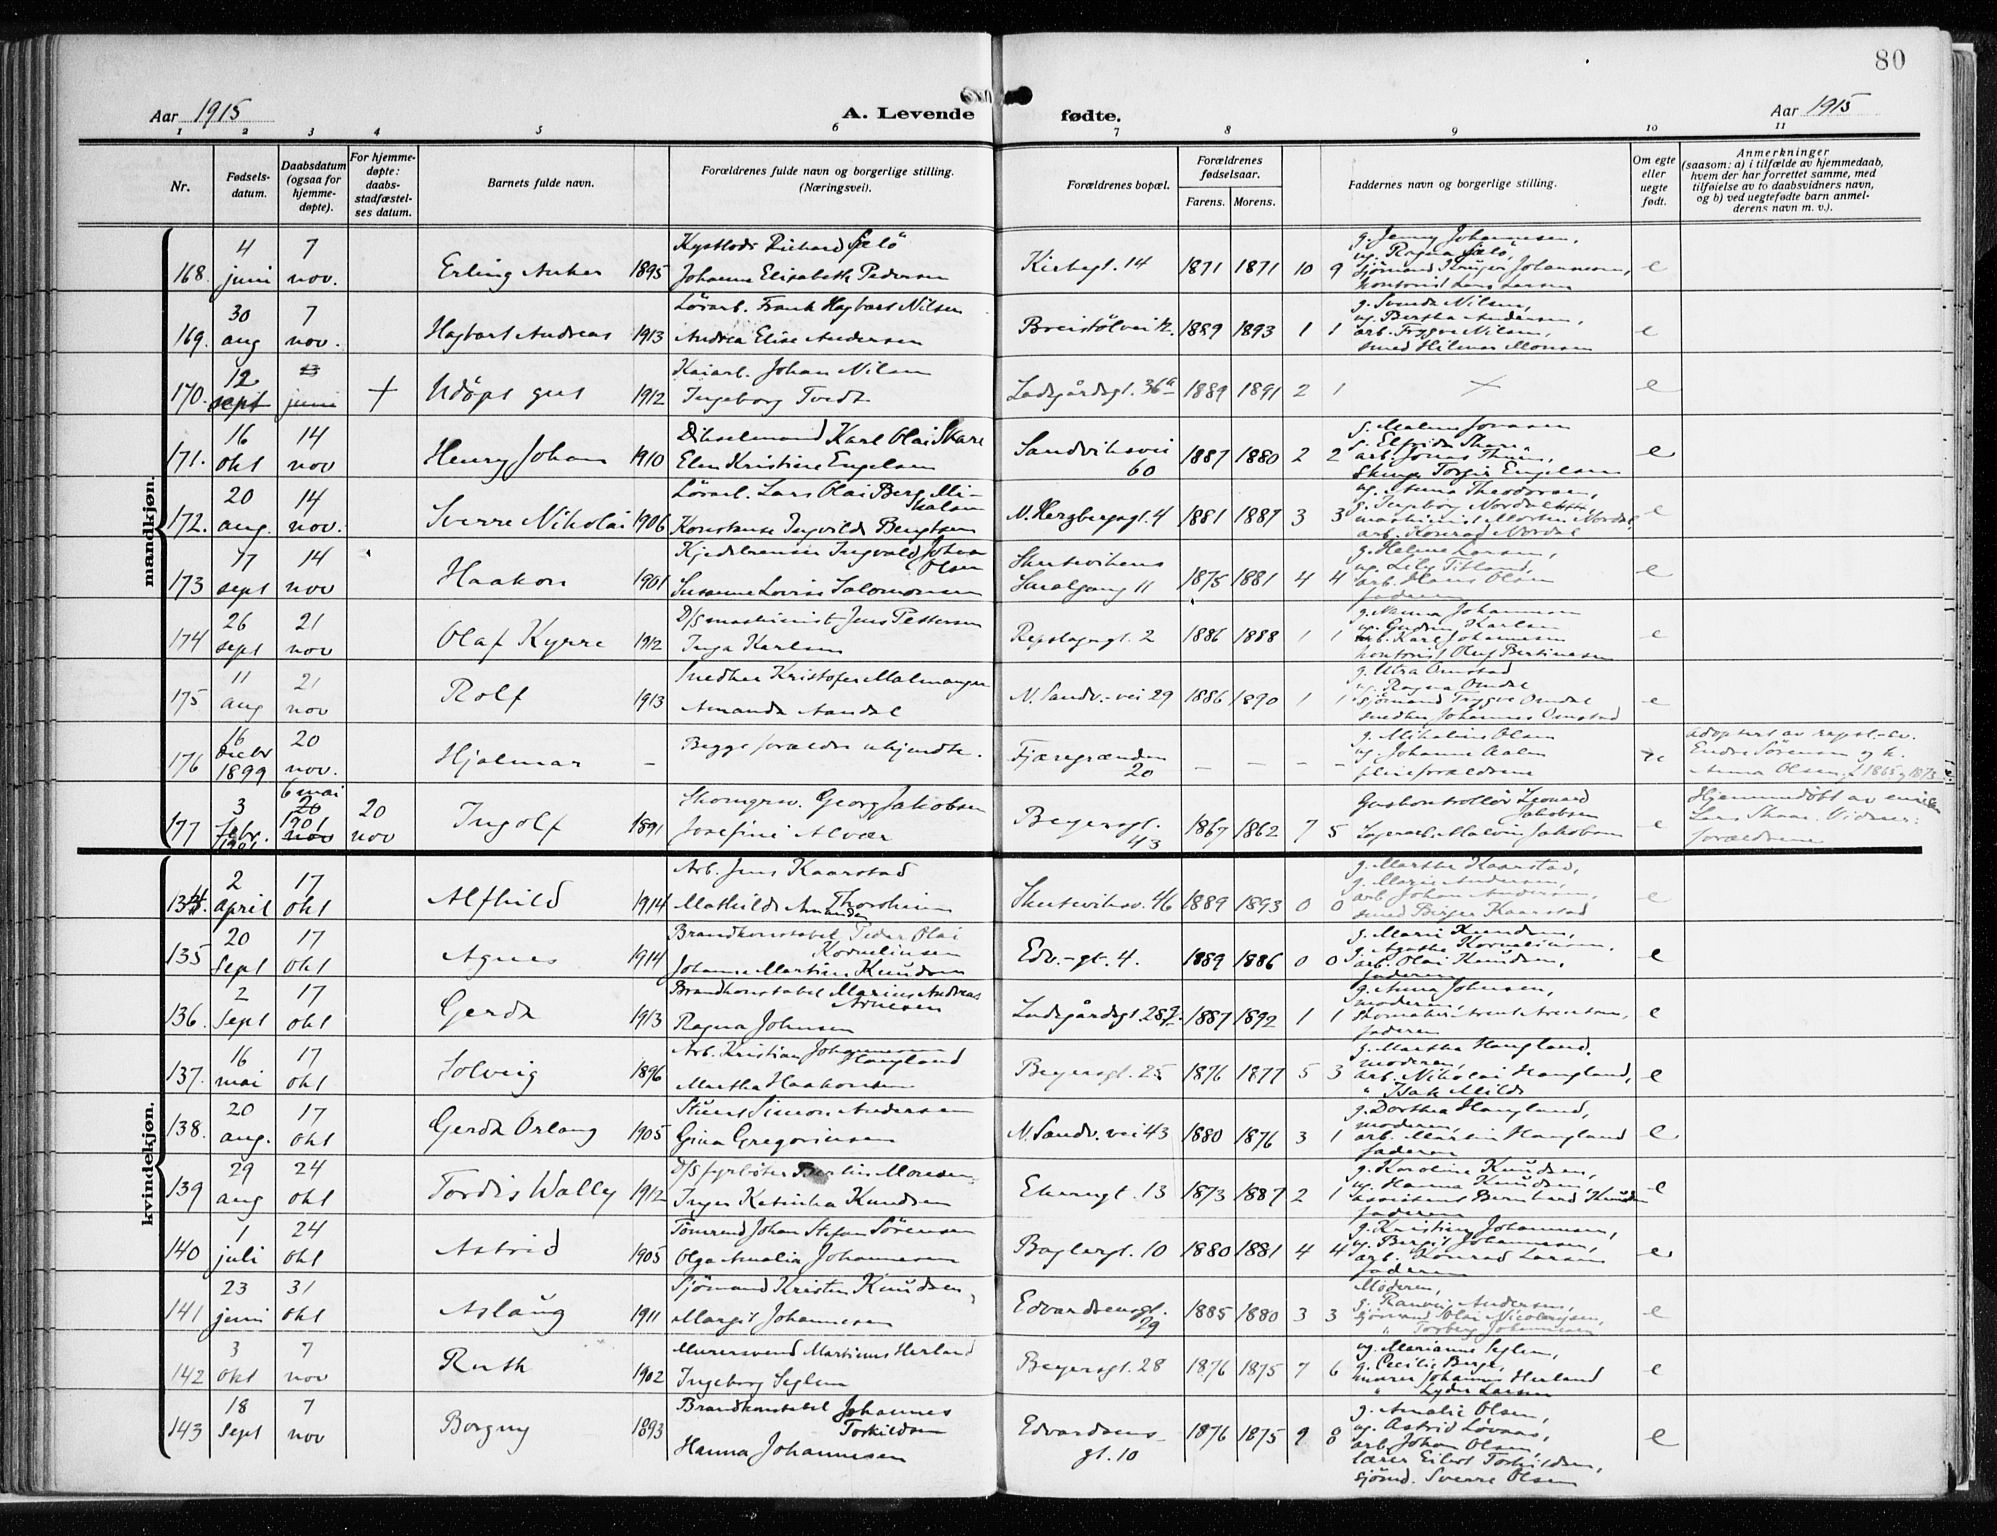 80
Aar 1915
A. Levende fødte.
Aar 1915
1 2 3 4 5 6 7 8 9 10 11
Nr.
Fødsels-
datum.
Daabsdatum
(ogsaa for
hjemme-
døpte).
For hjemme-
døpte:
daabs-
stadfæstel-
ses datum.
Barnets fulde navn.
Forældrenes fulde navn og borgerlige stilling.
(Næringsvei).
Forældrenes bopæl.
Forældrenes
fødselsaar.
Farens. Morens.
Faddernes navn og borgerlige stilling.
Om egte
eller
uegte
født.
Anmerkninger
(saasom: a) i tilfælde av hjemmedaab,
hvem der har forrettet samme, med
tilføielse av to daabsvidners navn,
og b) ved uegtefødte barn anmel-
derens navn m. v.).
mandkjøn.
4 7 Richard Sælö g. Jenny Johannesen,
168. juni nov. Erling Anker 1895 Johanne Elisabeth Pedersen Kirkegt. 14 1871 1871 10 9 e
ug. Ragna Sælö,
sjömand Krüger Johannesen,
kontorist Lars Larsen
30 7 Lörarb. Frank Hagbart Nilsen
169. aug nov. Hagbart Andreas 1913 Andrea Elise Andersen Breistölvei 12. 1889 1893 1 1 e
ug. Bertha Andersen,
arb. Trygve Nilsen,
smed Hilmar Monsen
12 13 Kaiarb. Johan Nilsen
170. sept juni + Udöpt gut 1912 Ingeborg Tvedt Ladegårdsgt. 36a 1889 1891 2 1 × e
16 14 Karl Olai Skare
171. okt nov Henry Johan 1910 Elen Kristine Engelsen Sandviksvei 60 1887 1880 2 2 e
g. Elfrida Skare,
arb. Jonas Thuen,
Torgeir Engelsen
20 14 Lörarb. Lars Olai Berg Mi-
kalsen
172. aug. nov. Sverre Nikolai 1906 Konstanse Ingvilda Bengtsen N. Herzbergsgt. 4 1881 1887 3 3 e
ug. Anna Theodorsen,
g. Ingeborg Nordal
maskinist Morten Nordal,
arb. Konrad Nordal
17 14 Ingvald Johan
Olsen
173 sept nov Haakon 1901 Susanne Lovise Salomonsen Skutevikens
Smalgang 11 1875 1881 4 4 e
g. Helene Larsen,
ug. Lily Titland,
arb. Hans Olsen
faderen
26 21 D/s maskinist Jens Pettersen
174 sept nov Olaf Kyrre 1912 Inga Karlsen Repslagergt. 2 1886 1888 1 1 e
g. Nanna Johannesen
ug. Gudrun Karlsen
arb. Karl Johannesen
kontorist Oluf Bertinesen
11 21 Snedker Kristofer Malmanger
175 aug nov Rolf 1913 Amanda Aandal N. Sandv.-vei 29 1886 1890 1 1 e
ug. Ragna Omdal
sjömand Trygve Omdal
snedker Johannes Omstad
16 20
176 decbr 1899 nov. Hjalmar – Begge forældre ukjendte. Fjæregrænden 20 – – – –
g. Mikaline Olsen
ug. Johanne Aalen
pleieforældrene
adoptert av
Endre Sörensen og h.
Anna Olsen, f. 1865 og 1873
3 6 mai 20 20 Georg Jakobsen
177 febr. 1901 1901 nov nov Ingolf 1891 Josefine Alvær Beyersgt. 43 1867 1862 7 5 e
Gaskontrollör Leonard
Jakobsen
Lagerarb. Malvin Jakobsen
Hjemmedöbt av
Lars Skaar. Vidner:
forældrene
kvindekjøn.
2 17 Arb. Jens Kaarstad
134. april okt Alfhild 1914 Mathilde Amanda Thorsheim Skuteviksv. 46 1889 1893 0 0 e
g. Marthe Kaarstad,
g. Marie Andersen,
arb. Johan Andersen,
smed Birger Kaarstad
20 17 Brandkonstabel Peder Olai
Kornelinsen
135 sept okt Agnes 1914 Johanne Martine Knudsen Edv.-gt. 4. 1889 1886 0 0 e
g. Marie Knudsen,
g. Agathe Kornelinsen,
arb. Olai Knudsen,
faderen
2 17 Brandkonstabel Marius Andreas
Arnesen
136. sept okt Gerda 1913 Ragna Johnsen Ladegårdsgt. 28 1887 1892 1 1 e
g. Anna Johnsen,
moderen,
faderen
16 17 Arb. Kristian Johannesen
Haugland
137. mai okt Solveig 1896 Martha Haakonsen Beyersgt. 25 1876 1877 5 3 e
g. Martha Haugland,
moderen,
arb. Nikolai Haugland,
" Isak Milde
20 17 Stuert Simon Andersen
138. aug. okt Gerda Orlaug 1905 Gina Gregoriusen N. Sandv. vei 43 1880 1876 3 1 e
g. Dorthea Haugland,
moderen,
arb. Martin Haugland
faderen
29 24 D/s fyrböter Monsen
139 aug okt Tordis Wally 1912 Inger Katinka Knudsen Ekeregt. 13 1873 1887 2 1 e
g. Karoline Knudsen,
ug. Hanna Knudsen,
assistent Bernhard Knudsen
faderen
1 24 Johan Stefan Sörensen
140 juli okt Astrid 1905 Olga Amalia Johannesen Baglergt. 10 1880 1881 4 4 e
g. Kristine Johannesen,
ug. Bergit Johannesen,
arb. Konrad Larsen
faderen
23 31 Sjömand Kristen Knudsen,
141 juni okt Aslaug 1911 Margit Johannesen Edvardsensgt. 29 1885 1880 3 3 e
Moderen,
g. Ranvei Andersen,
sjömand Olai Nicolaysen,
" Torberg Johannesen
3 7 Murersvend Martinus Herland
142 okt nov Ruth 1902 Ingeborg Seglem Beyersgt. 28 1876 1875 7 6 e
ug. Marianne Seglem,
g. Cecilie Berge,
murer Johannes Herland
" Lyder Larsen
18 7 Brandkonstabel Johannes
Torkildsen
143 sept nov Borgny 1893 Hanna Johannesen Edvardsens-
gt. 10 1876 1875 9 8 e
g. Amalie Olsen,
ug. Astrid Lövaas,
arb. Johan Olsen,
lærer Eilert Torkildsen,
sjömd. Sverre Olsen